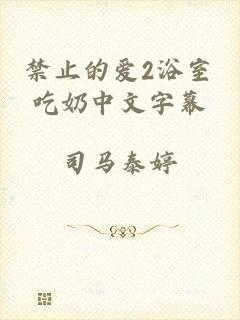 禁止的爱2浴室
吃奶中文字幕
司马泰婷